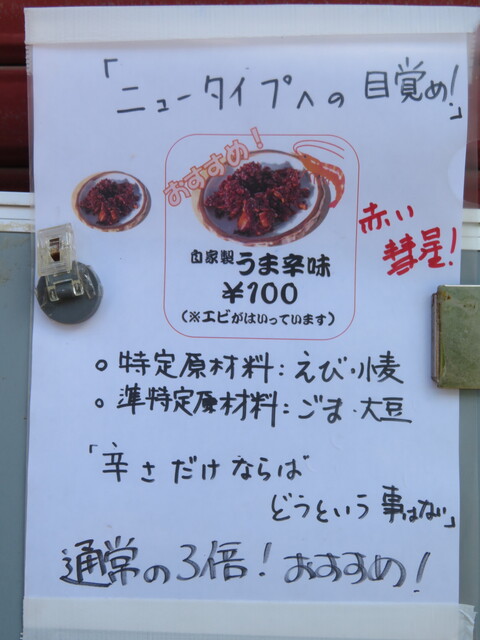 「ニュータイプへの目覚め！」
おすすめ！
自家製うま辛味
￥100
（※エビがはいっています）
赤い
彗星！
○特定原材料：えび・小麦
○準特定原材料：ごま・大豆
「辛さだけならば
どうという事はない」
通常の3倍！おすすめ！